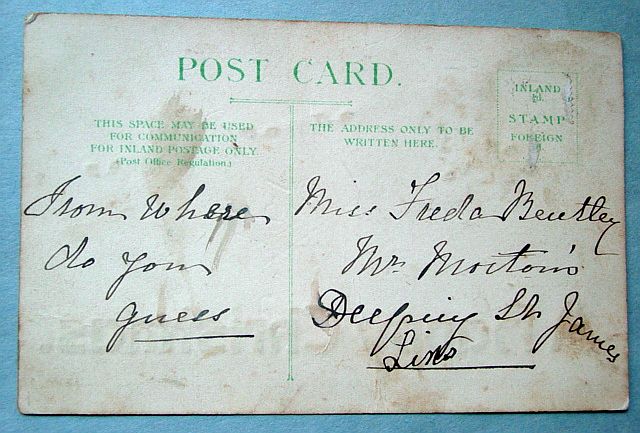 POST CARD.
THIS SPACE MAY BE USED
FOR COMMUNICATION
FOR INLAND POSTAGE ONLY.
(Post Office Regulation.)
From Where
do you
guess
THE ADDRESS ONLY TO BE
WRITTEN HERE.
INLAND
½d.
STAMP
FOREIGN
Miss Freda Bentley
Mr Morton's
Deeping St James
Lincs